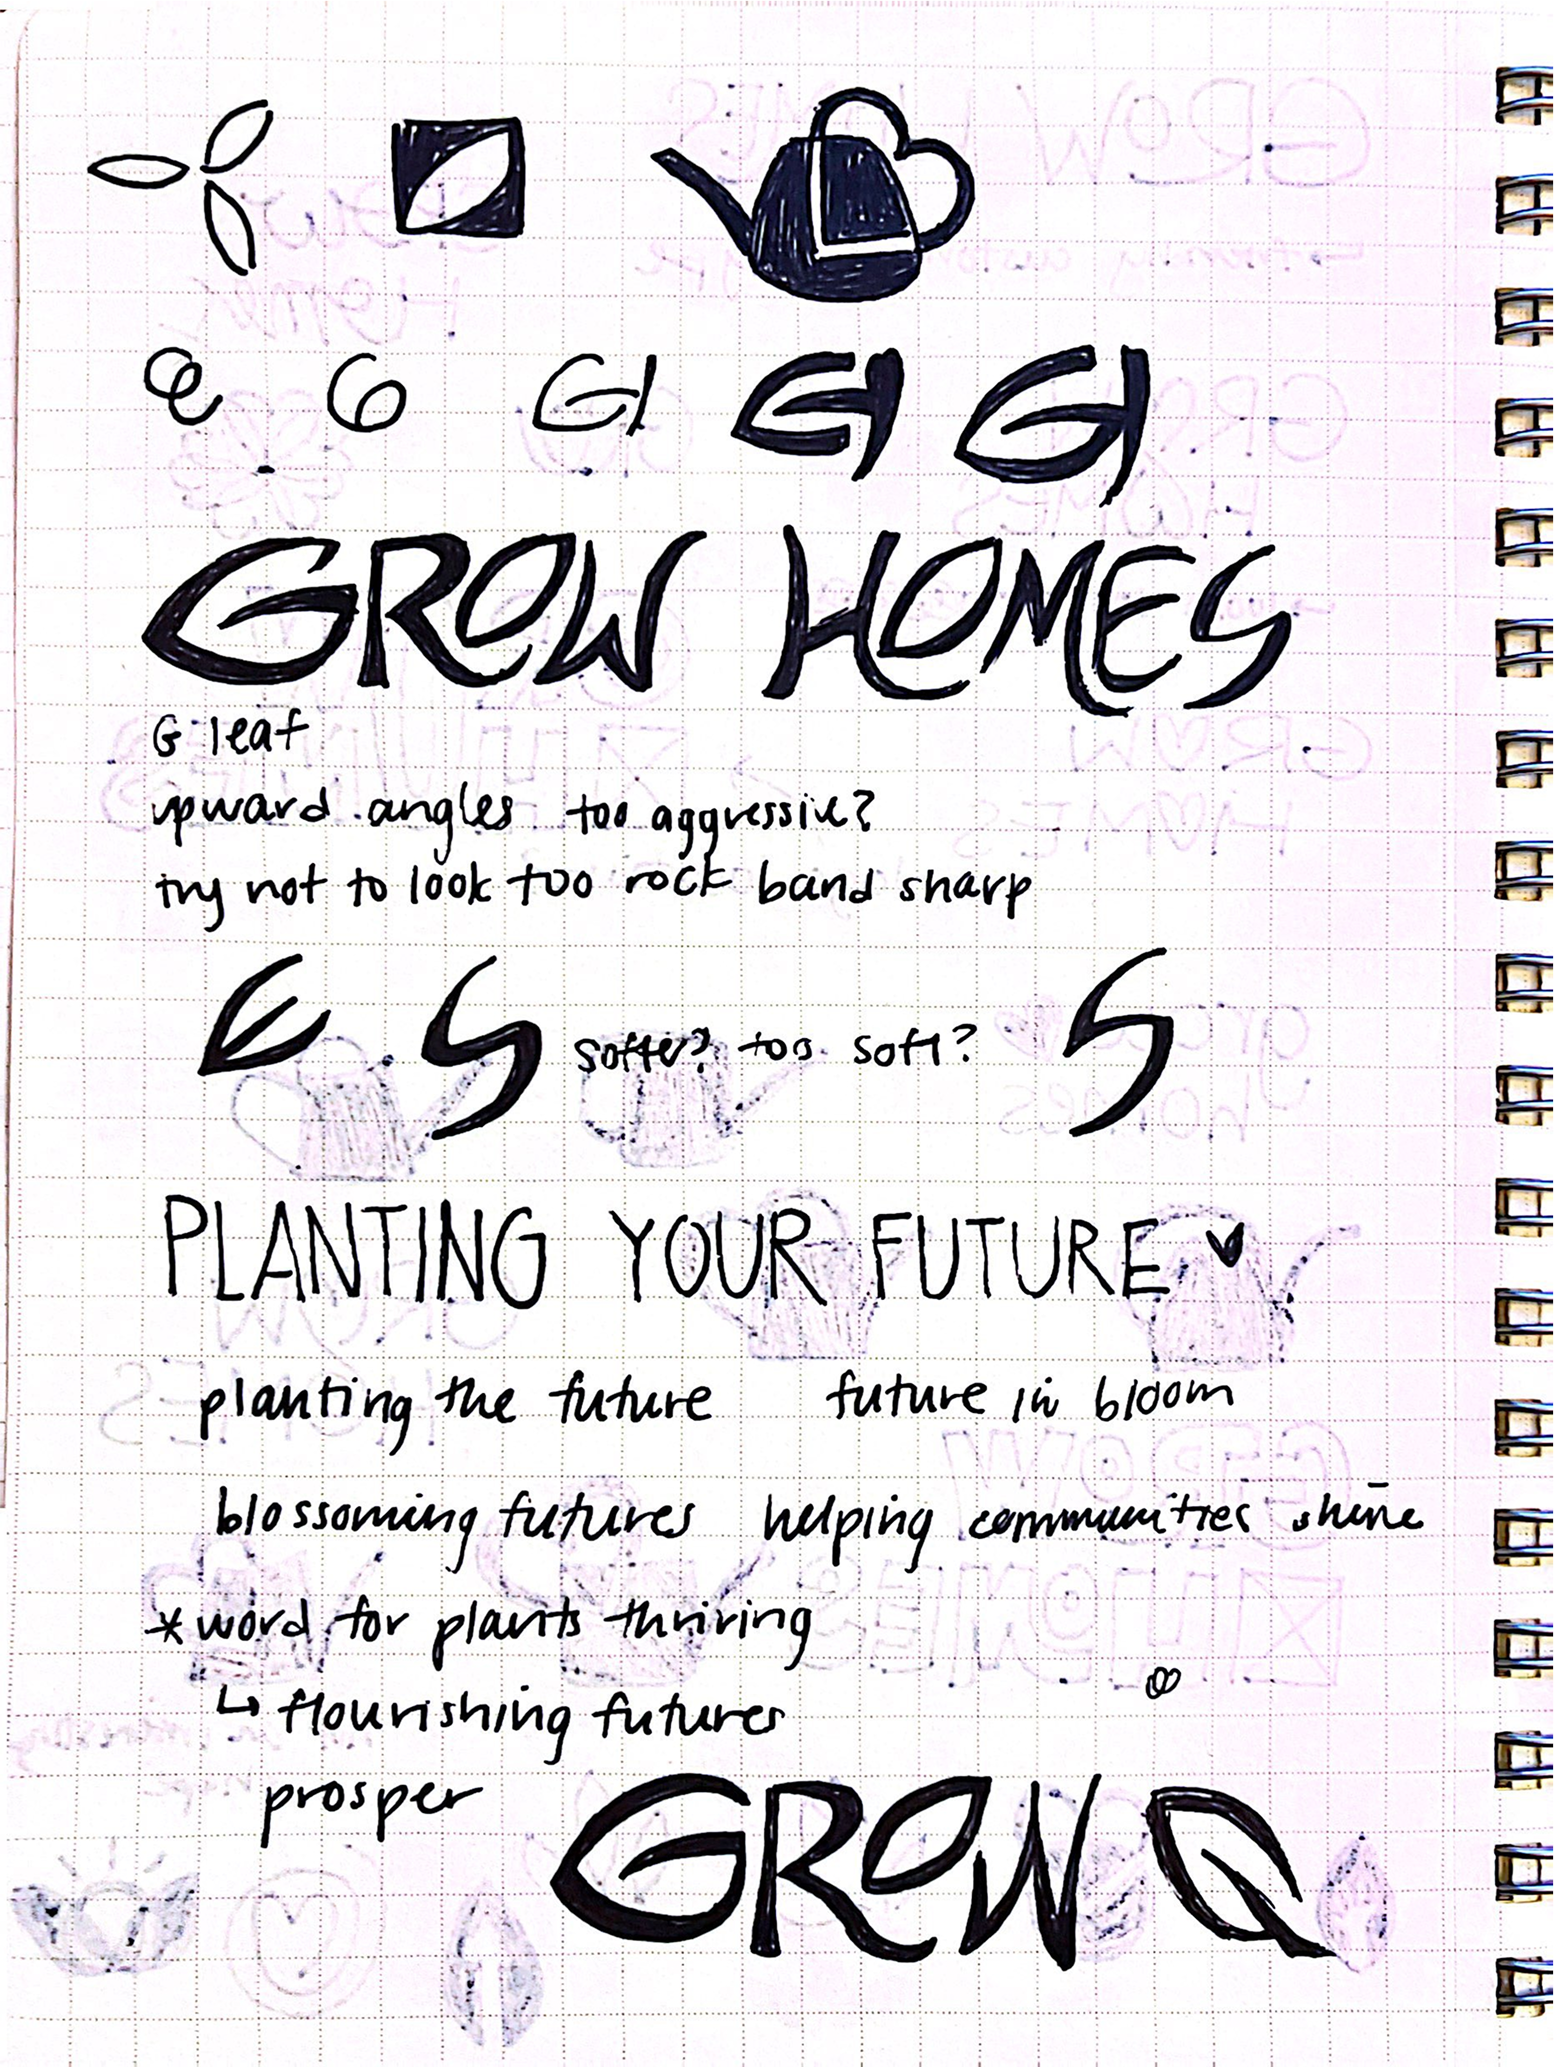 e G GI GI GI
GROW HOMES
G leaf
upward angles too aggressive?
try not to look too rock band sharp
E S softer? too soft? S
PLANTING YOUR FUTURE
planting the future future in bloom
blossoming futures helping communities shine
*word for plants thriving
↳ flourishing futures
prosper
GROW